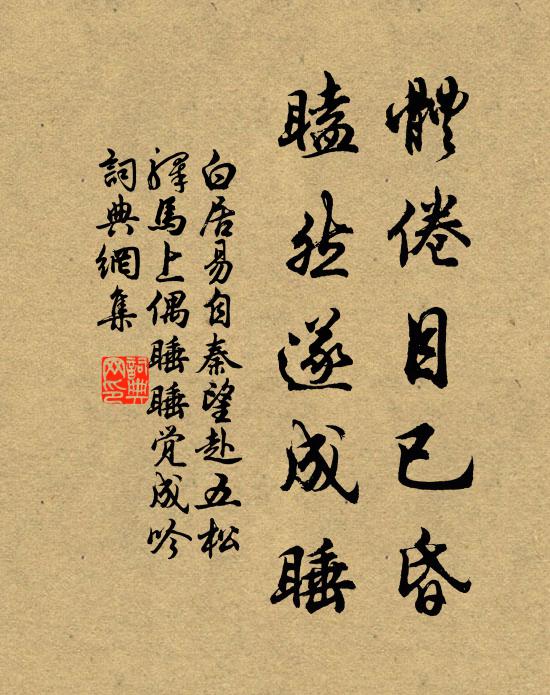 體倦目已昏
瞌然遂成睡
白居易自秦望赴五松
驛馬上偶睡睡覚成吟
詞典網集
詞典
网印